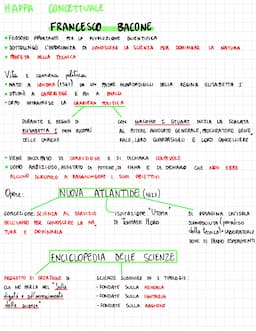 MAPPA CONCETTUALE
FRANCESCO BACONE
• FILOSOFO IMPORTANTE PER LA RIVOLUZIONE SCIENTIFICA
• SOTTOLINEÒ L'IMPORTANZA DI CONOSCERE LA SCIENZA PER DOMINARE LA NATURA
• PROFETA DELLA TECNICA
Vita e carriera politica
• NATO A LONDRA (1561) DA UN PADRE GUARDASIGILLI DELLA REGINA ELISABETTA I
• STUDIÒ A CAMBRIDGE E POI A PARIGI
• INTRAPRESE LA CARRIERA POLITICA
DURANTE IL REGNO DI
ELISABETTA I NON RICOPRÌ
DELLE CARICHE
CON GIACOMO I STUART INIZIA LA SCALATA
AL POTERE: AVVOCATO GENERALE, PROCURATORE GENE-
RALE, LORD GUARDASIGILLI E LORD CANCELLIERE
• VIENE INCOLPATO DI CORRUZIONE E SI DICHIARA COLPEVOLE
• UOMO AMBIZIOSO, AMANTE DI POTERE, DI FAMA E DI DENARO CHE NON EBBE
ALCUNO SCRUPOLO A RAGGIUNGERE I SUOI OBIETTIVI
Opere:
NUOVA ATLANTIDE (1627)
CONCEZIONE SCIENZA AL SERVIZIO
DELL'UOMO PER CONOSCERE LA NA-
TURA E DOMINARLA
ISPIRAZIONE "Utopia"
DI Tommaso Moro
DI PARADISO
(della tecnica)
ENCICLOPEDIA DELLE SCIENZE
PROGETTO DI CREAZIONE DI
CUI NE PARLA NEL "Sulla
dignità e sull'accrescimento
delle scienze"
SCIENZE SUDDIVISE IN 3 TIPOLOGIE:
- FONDATE SULLA MEMORIA
- FONDATE SULLA FANTASIA
- FONDATE SULLA RAGIONE